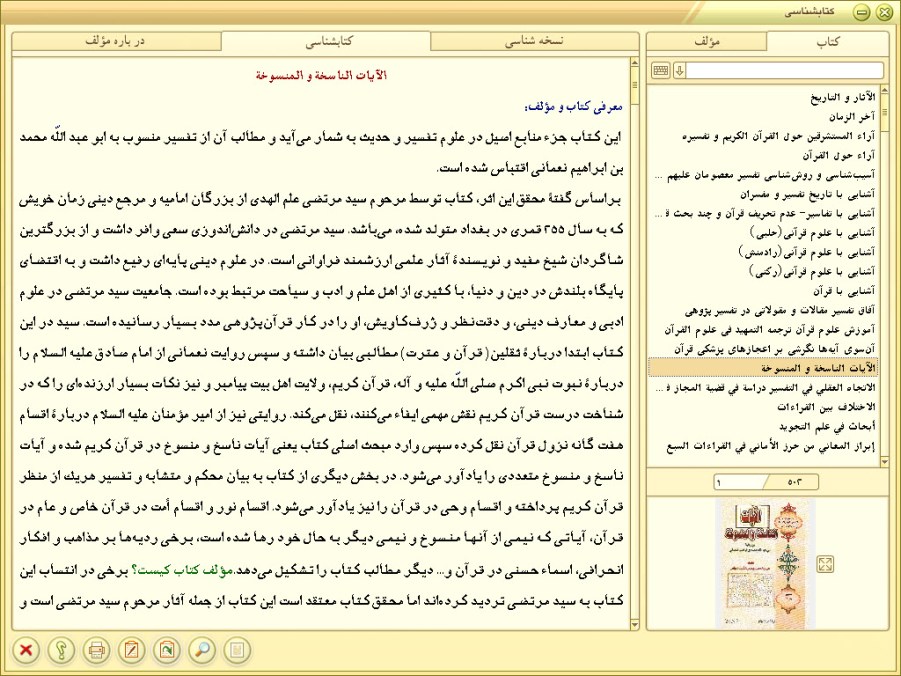 کتابشناسی
کتاب
مؤلف
نسخه شناسی
کتابشناسی
در باره مؤلف
الآثار و التاریخ
آخر الزمان
آراء المستشرقین حول القرآن الکریم و تفسیره
آراء حول القرآن
آسیب‌شناسی و روش‌شناسی تفسیر معصومان علیهم ...
آشنایی با تاریخ تفسیر و مفسران
آشنایی با تفاسیر- عدم تحریف قرآن و چند بحث ق...
آشنایی با علوم قرآنی(حلبی)
آشنایی با علوم قرآنی(رادمنش)
آشنایی با علوم قرآنی(رکنی)
آشنایی با قرآن
آفاق تفسیر مقالات و مقولاتی در تفسیر پژوهی
آموزش علوم قرآن ترجمه التمهید فی علوم القرآن
آن‌سوی آیه‌ها نگرشی بر اعجازهای پزشکی قرآن
الآیات الناسخة و المنسوخة
الاتجاه العقلي في التفسير دراسة في قضية المجاز ف...
الاختلاف بین القراءات
أبحاث في علم التجويد
إبراز المعاني من حرز الأماني في القراءات السبع
۱
۵۰۳
الآیات الناسخة و المنسوخة
معرفی کتاب و مؤلف:
این کتاب جزء منابع اصیل در علوم تفسیر و حدیث به شمار می‌آید و مطالب آن از تفسیر منسوب به ابو عبد اللّه محمد
بن ابراهیم نعمانی اقتباس شده است.
براساس گفتهٔ محقق این اثر، کتاب توسط مرحوم سید مرتضی علم الهدی از بزرگان امامیه و مرجع دینی زمان خویش
که به سال ۳۵۵ قمری در بغداد متولد شده، می‌باشد. سید مرتضی در دانش‌اندوزی سعی وافر داشت و از بزرگترین
شاگردان شیخ مفید و نویسندهٔ آثار علمی ارزشمند فراوانی است. در علوم دینی پایه‌ای رفیع داشت و به اقتضای
پایگاه بلندش در دین و دنیا، با کثیری از اهل علم و ادب و سیاحت مرتبط بوده است. جامعیت سید مرتضی در علوم
ادبی و معارف دینی، و دقت‌نظر و ژرف‌کاویش، او را در کار قرآن‌پژوهی مدد بسیار رسانیده است. سید در این
کتاب ابتدا دربارهٔ ثقلین( قرآن و عترت) مطالبی بیان داشته و سپس روایت نعمانی از امام صادق علیه السلام را
دربارهٔ نبوت نبی اکرم صلی اللّه علیه و آله، قرآن کریم، ولایت اهل بیت پیامبر و نیز نکات بسیار ارزنده‌ای را که در
شناخت درست قرآن کریم نقش مهمی ایفاء می‌کنند، نقل می‌کند. روایتی نیز از امیر مؤمنان علیه السلام دربارهٔ اقسام
هفت گانه نزول قرآن نقل کرده سپس وارد مبحث اصلی کتاب یعنی آیات ناسخ و منسوخ در قرآن کریم شده و آیات
ناسخ و منسوخ متعددی را یادآور می‌شود. در بخش دیگری از کتاب به بیان محکم و متشابه و تفسیر هریک از منظر
قرآن کریم پرداخته و اقسام وحی در قرآن را نیز یادآور می‌شود. اقسام نور و اقسام أمت در قرآن خاص و عام در
قرآن، آیاتی که نیمی از آنها منسوخ و نیمی دیگر به حال خود رها شده است، برخی ردیه‌ها بر مذاهب و افکار
انحرافی، اسماء حسنی در قرآن و... دیگر مطالب کتاب را تشکیل می‌دهد.مؤلف کتاب کیست؟ برخی در انتساب این
کتاب به سید مرتضی تردید کرده‌اند اما محقق کتاب معتقد است این کتاب از جمله آثار مرحوم سید مرتضی است و